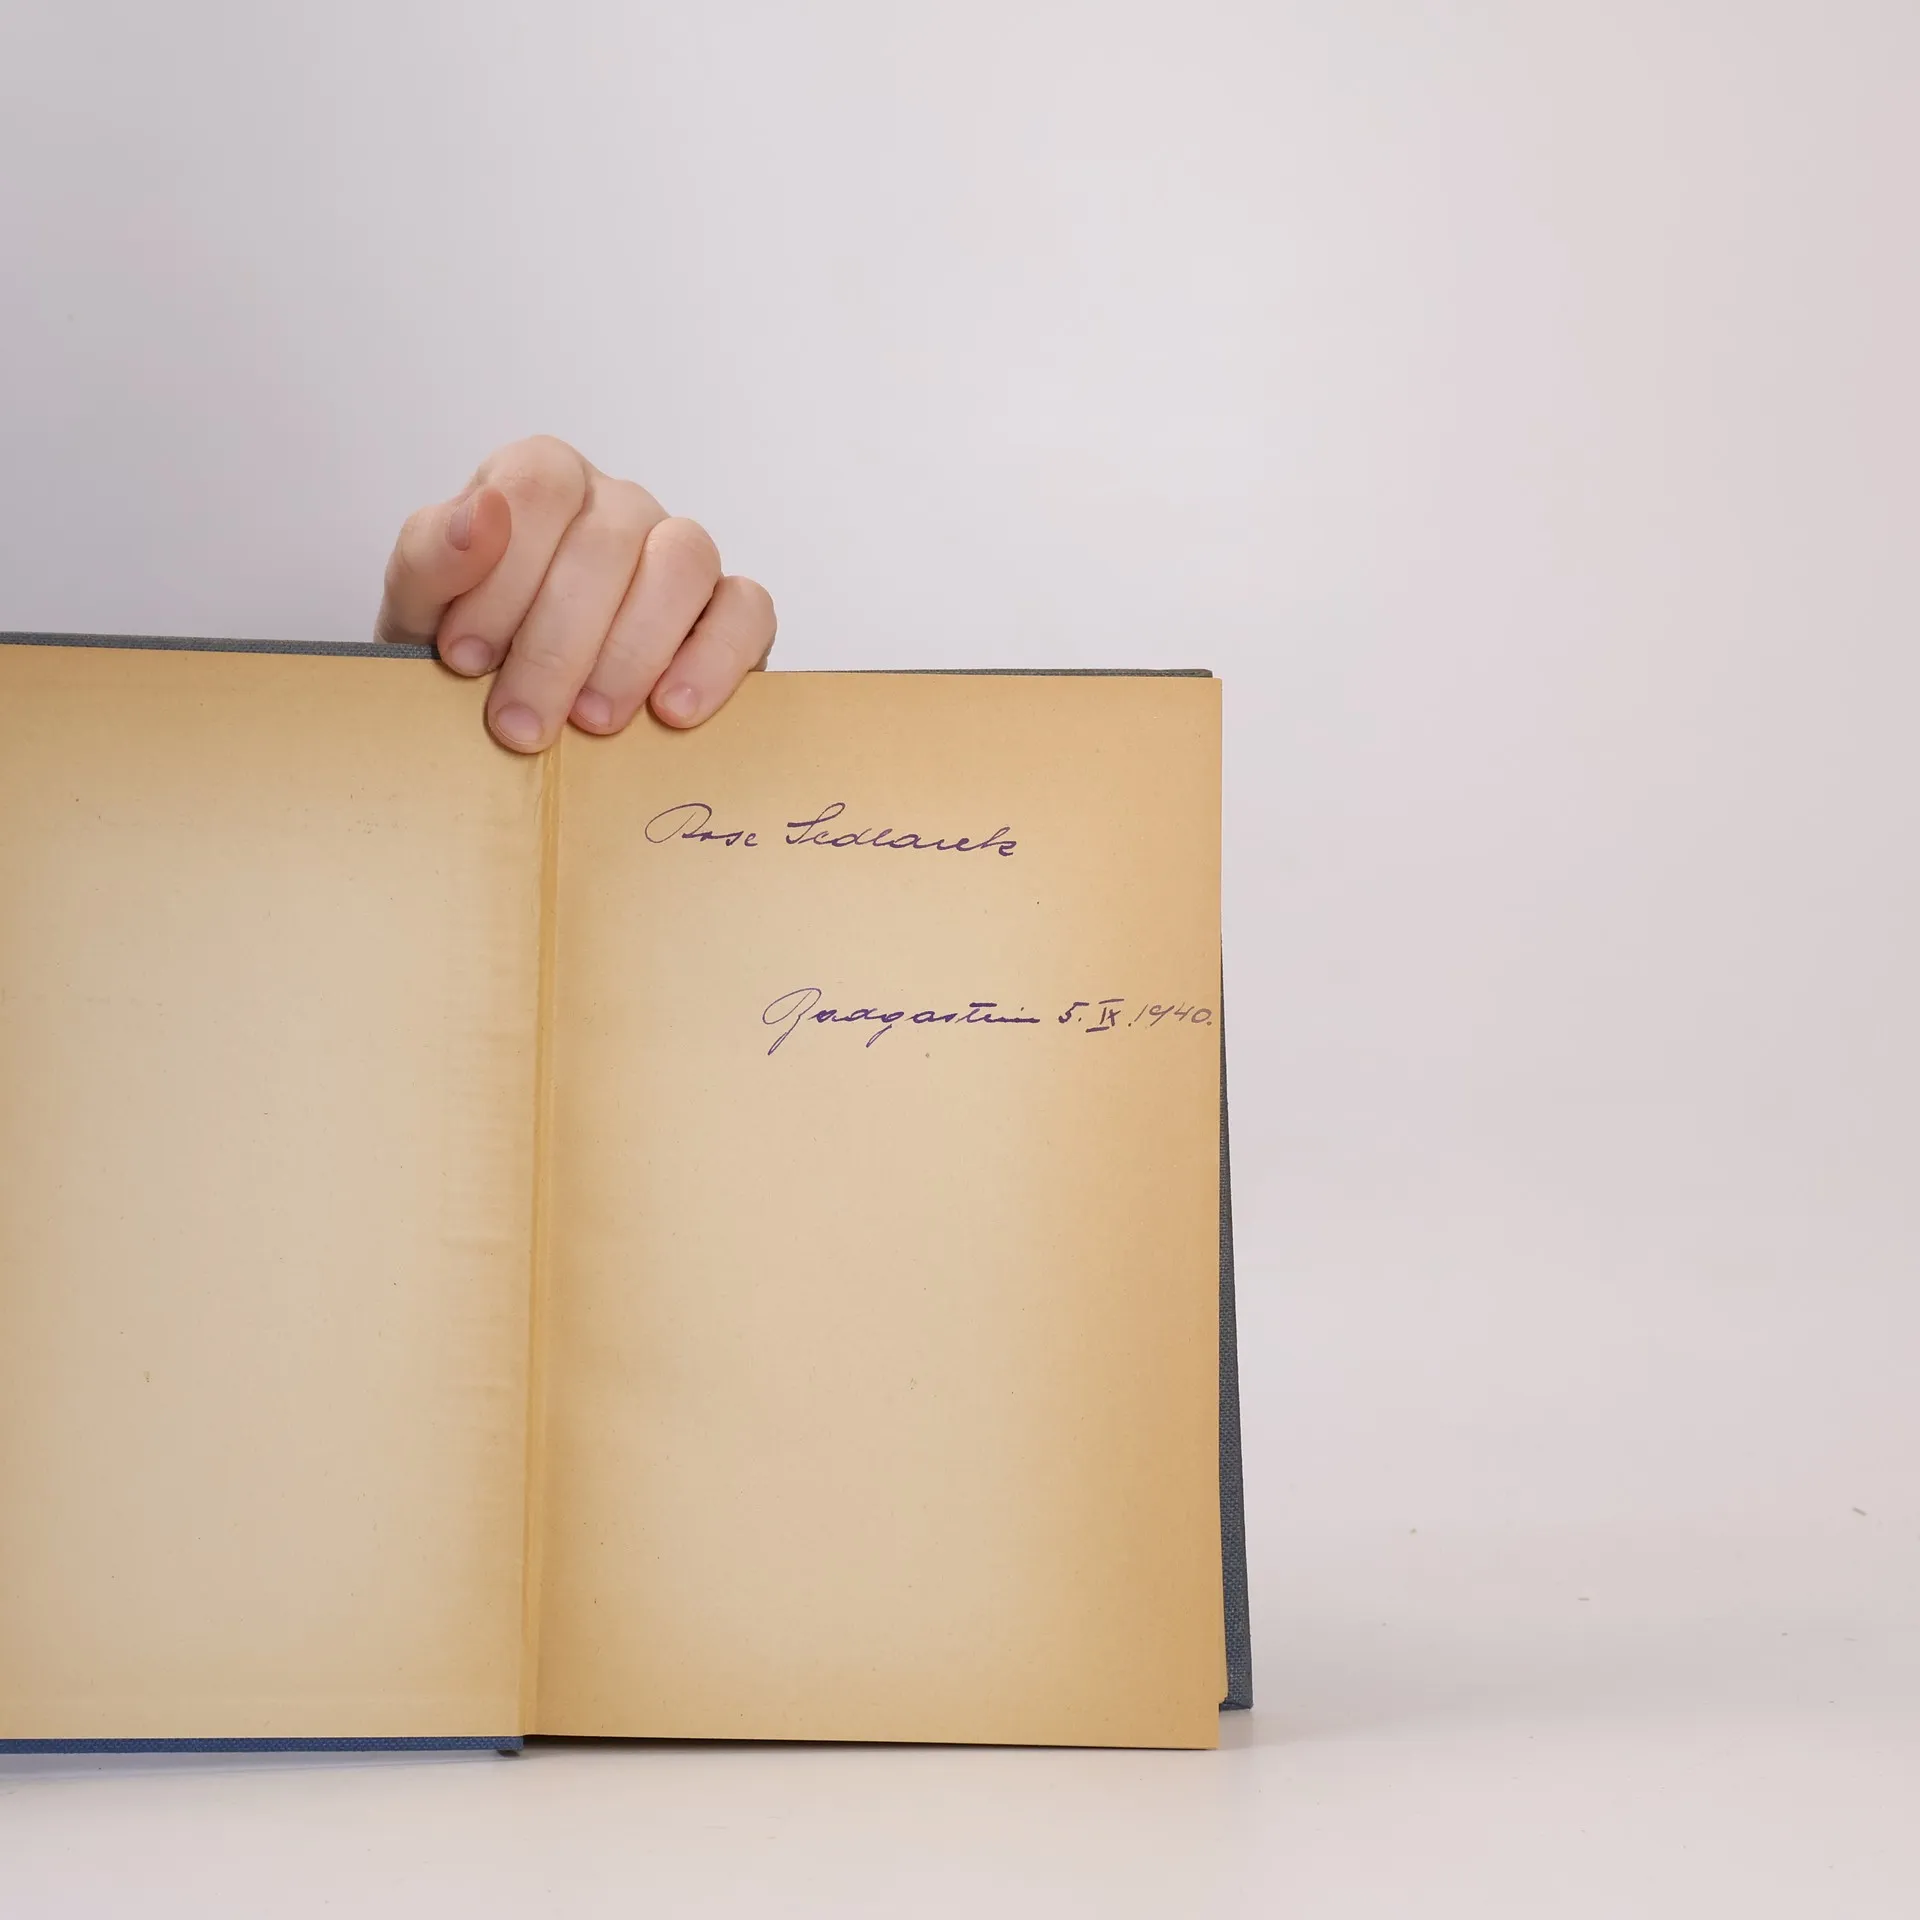 Rose Sedlarek
Badgastein 5. IX. 1940.